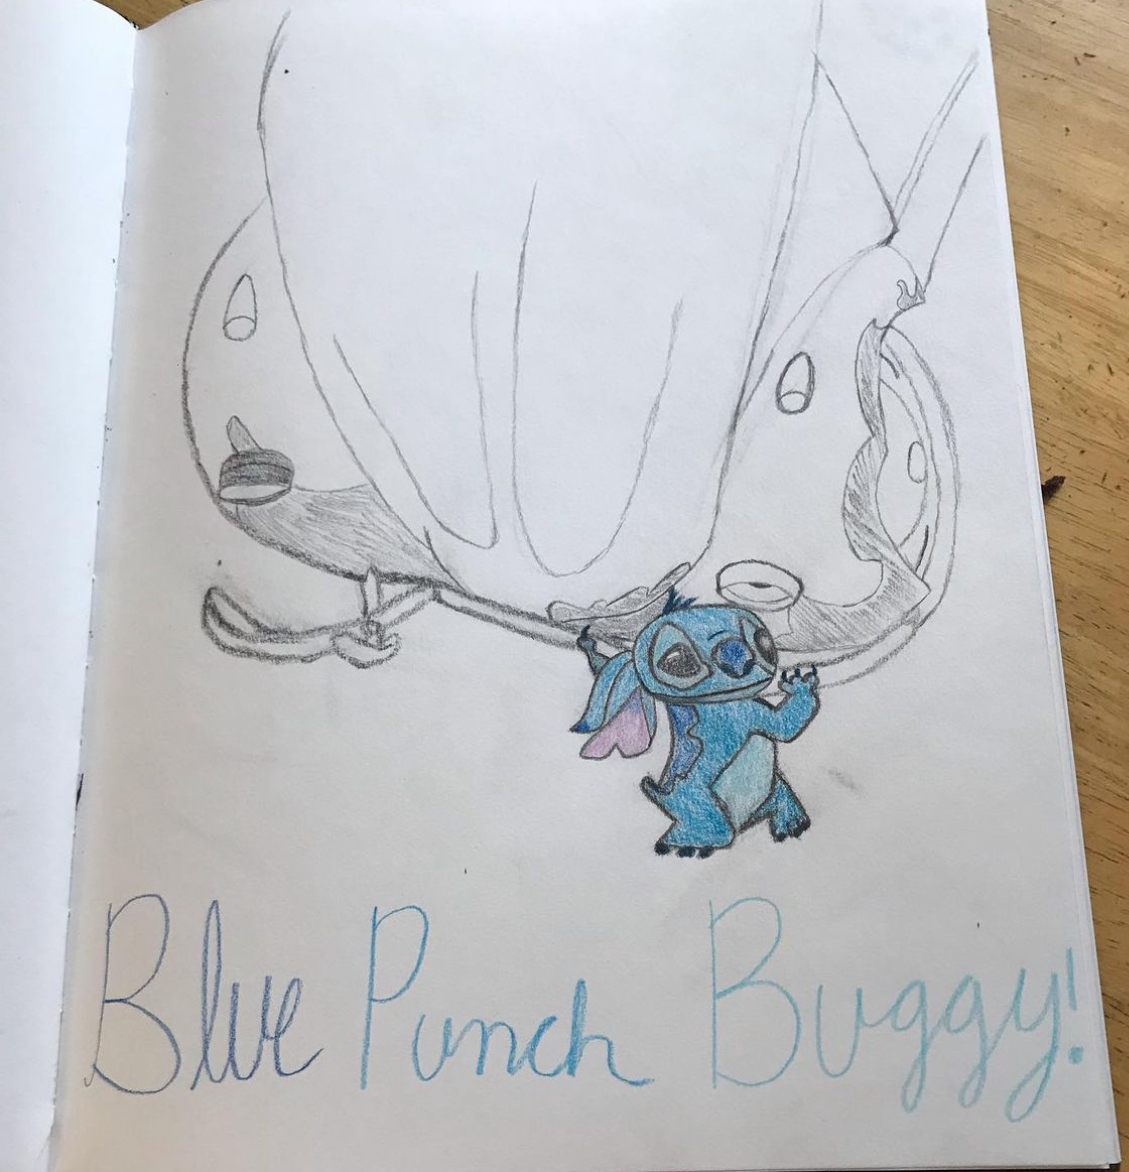 Blue Punch Buggy!